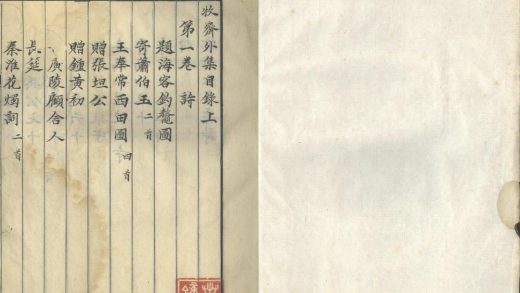 牧齋外集目錄上
第一卷 詩
題海客釣鼇圖
寄蕭伯玉二首
王奉常西田圖四首
贈張坦公
贈鍾黃初
廣陵顧舍人
長筵
秦淮花燭詞二首